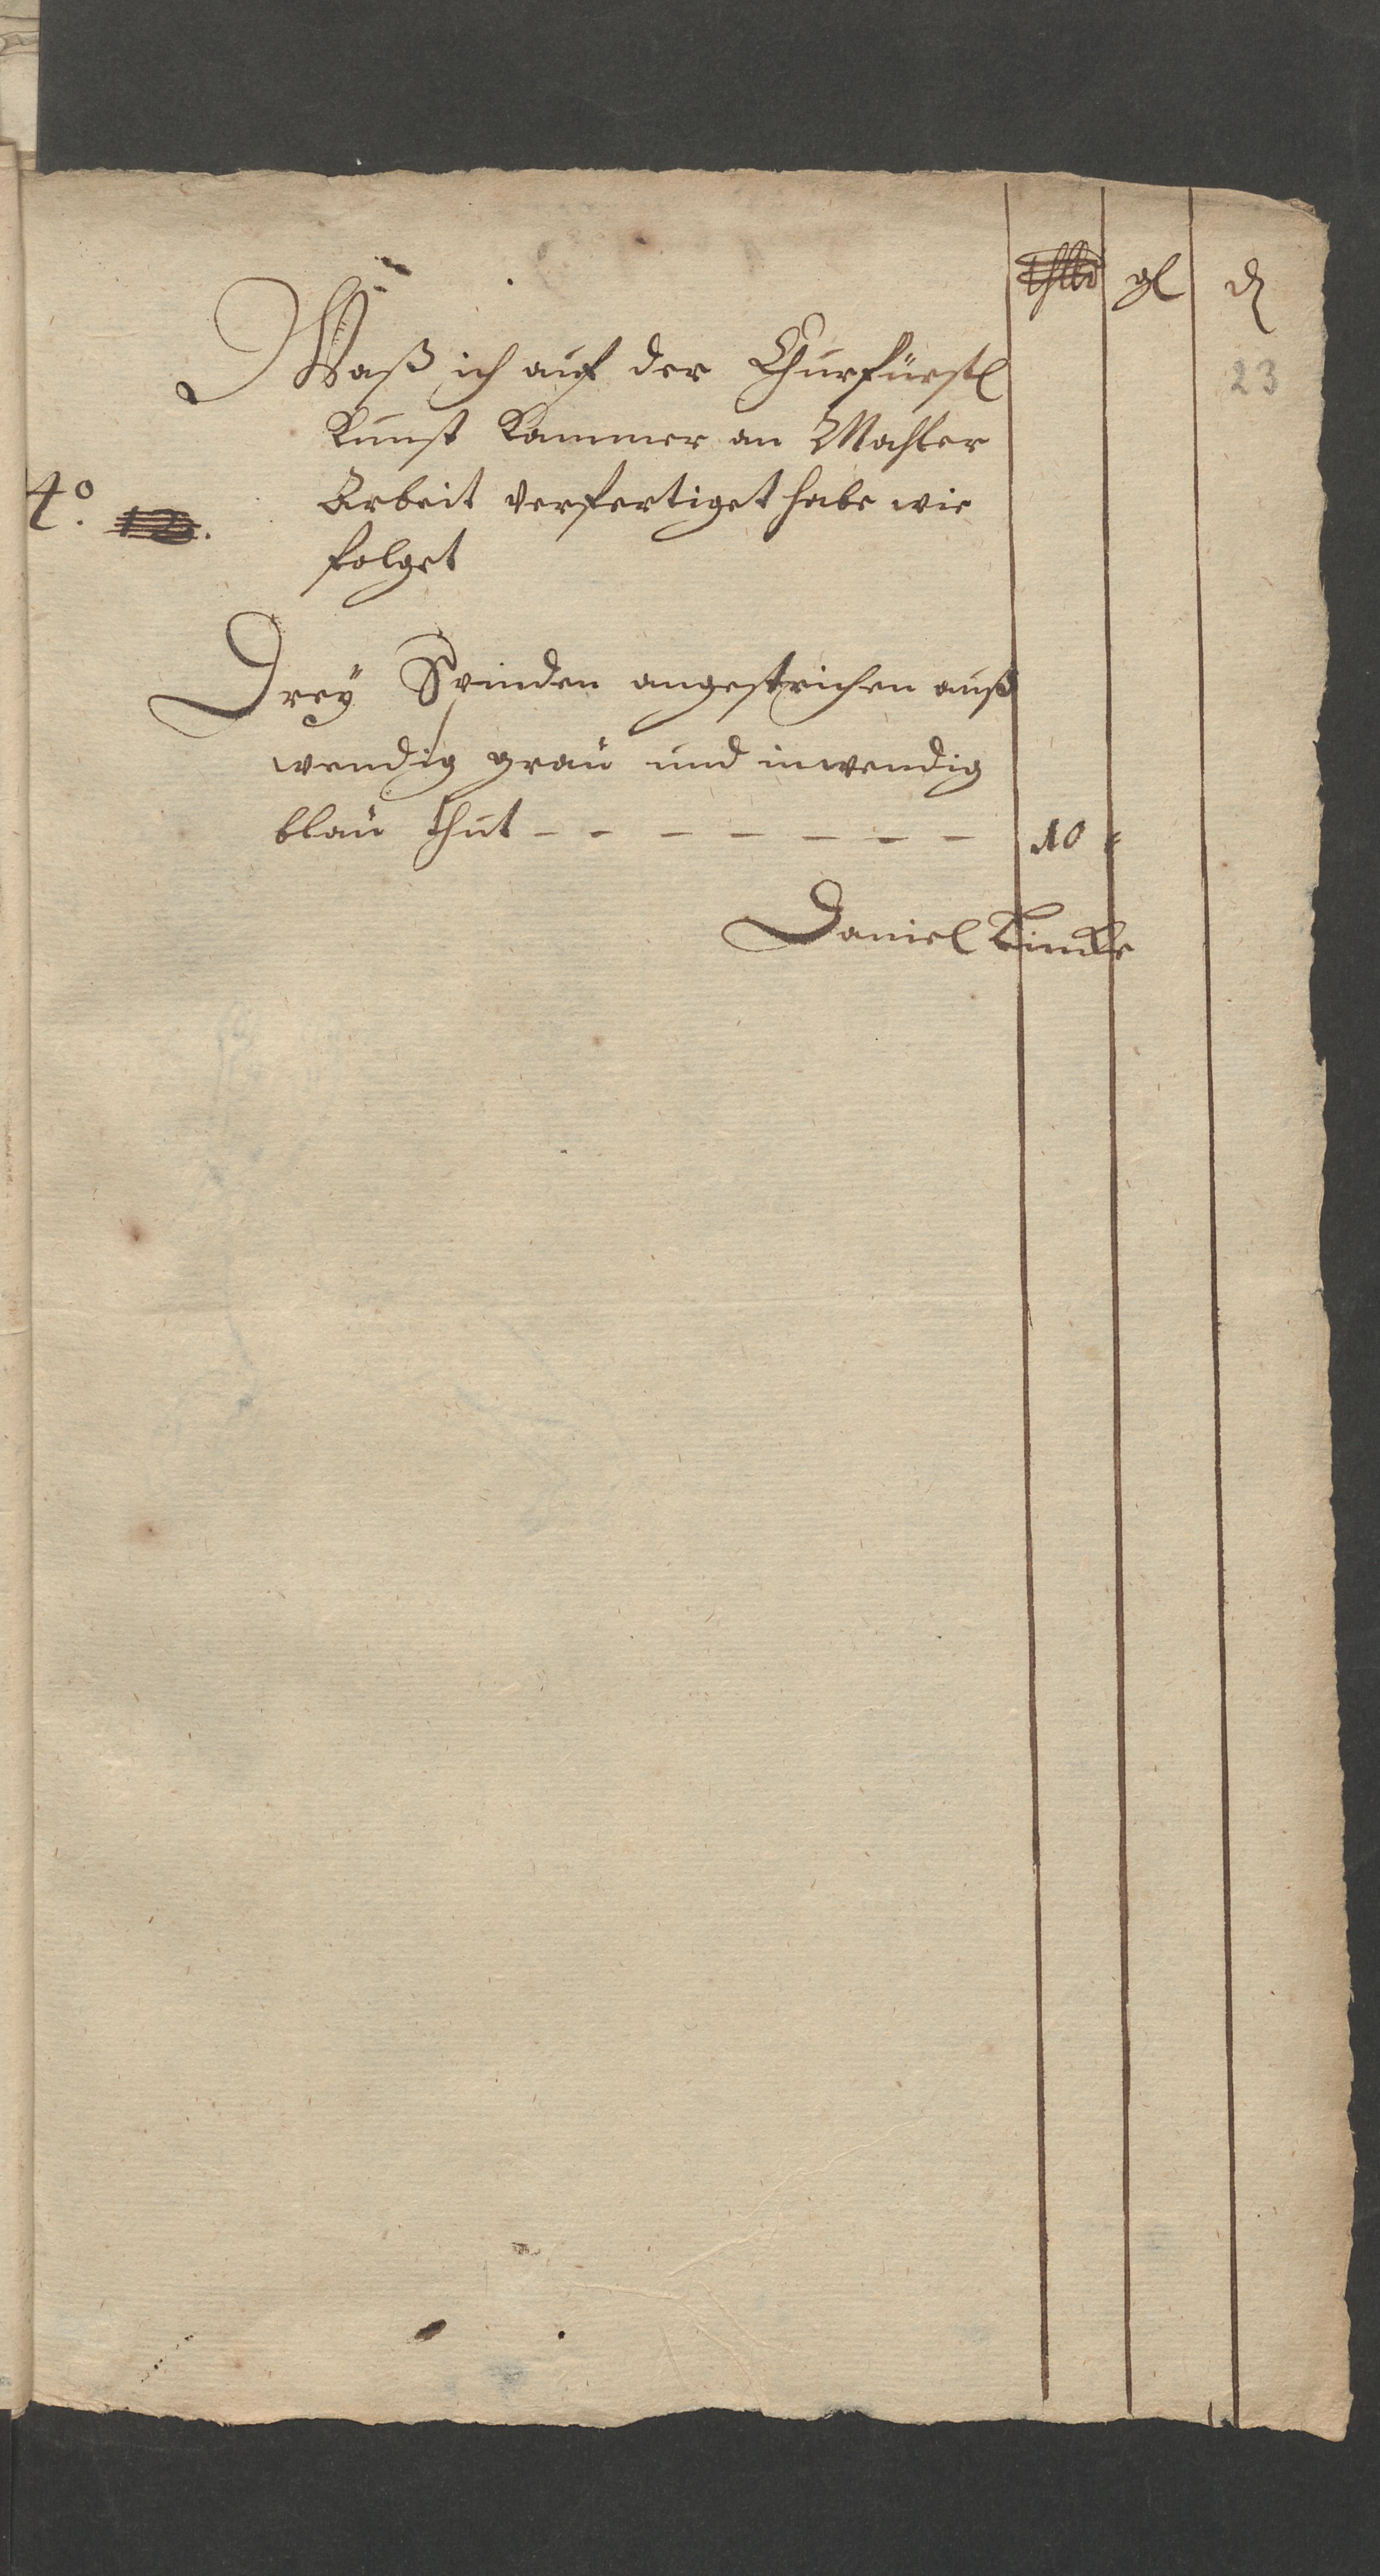 thlr gl d
23
Waß ich auf der Churfürstl
Kunst Kammer an Mahler
4° 12. Arbeit verfertiget habe wie
folget
Dreÿ Spinden angestrichen auß
wendig grau und inwendig
blau thut - - - - - - - 10
Daniel Lincke